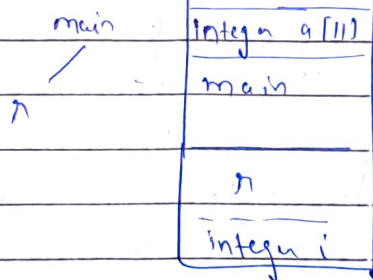 main
r
integer a[11]
main
r
integer i